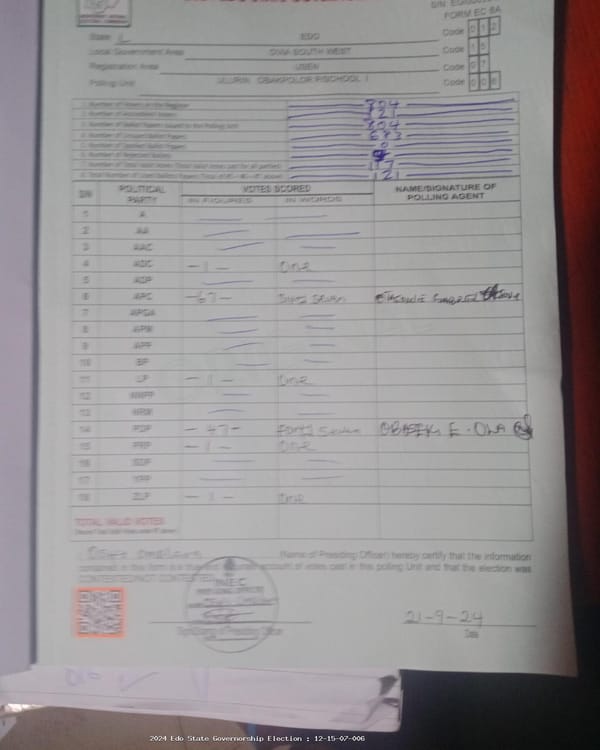 FORM EC 8A
State EDO Code 012
Local Government Area OVIA SOUTH WEST Code 15
Registration Area USEN Code 07
Polling Unit Code 006
1. Number of Voters on the Register 804
2. Number of Accredited Voters 121
3. Number of Ballot Papers Issued to the Polling Unit 804
4. Number of Unused Ballot Papers 683
5. Number of Spoiled Ballot Papers 0
6. Number of Rejected Ballots
7. Number of Total Valid Votes (Total valid votes cast for all parties) 117
8. Total Number of Used Ballot Papers 121
S/N POLITICAL PARTY VOTES SCORED IN FIGURES IN WORDS NAME/SIGNATURE OF POLLING AGENT
1 A
2 AA
3 AAC
4 ADC -1- One
5 ADP
6 APC -67- Sixty Seven
7 APGA
8 APM
9 APP
10 BP
11 LP -1- One
12 NNPP
13 NRM
14 PDP -47- Forty Seven OBASEKI E. OWA
15 PRP -1- One
16 SDP
17 YPP
18 ZLP -1- One
TOTAL VALID VOTES
(Name of Presiding Officer) hereby certify that the information
contained in this form is a true and account of votes cast in this polling Unit and that the election was
CONTESTED/NOT CONTESTED
INEC
Signature of Presiding Officer
21-9-24
Date
2024 Edo State Governorship Election : 12-15-07-006